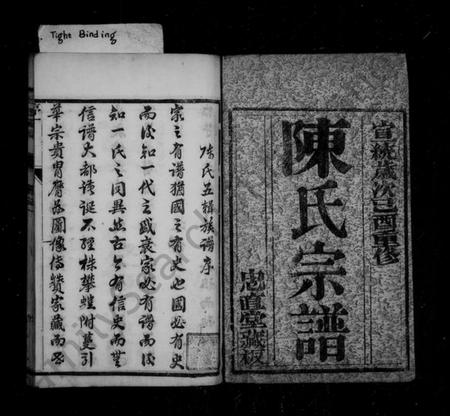 Tight Binding
宣統歲次己酉重修
陳氏宗譜
忠直堂藏板
陳氏五輯族譜序
家之有譜猶國之有史也國必有史
而後知一代之盛衰家必有譜而後
知一氏之同異丛古今有信史而無
信譜大都誇誕不經株攀蠟附蔓引
華宗貴胄厝名圖像傳贊家藏而